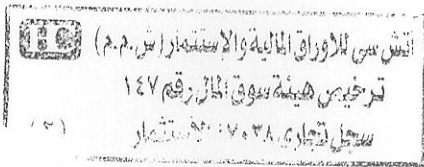 HC
اتش سى للاوراق المالية والاستثمار (ش.م.م)
ترخيص هيئة سوق المال رقم ١٤٧
سجل تجارى ٧٠٣٨ استثمار
(٢)